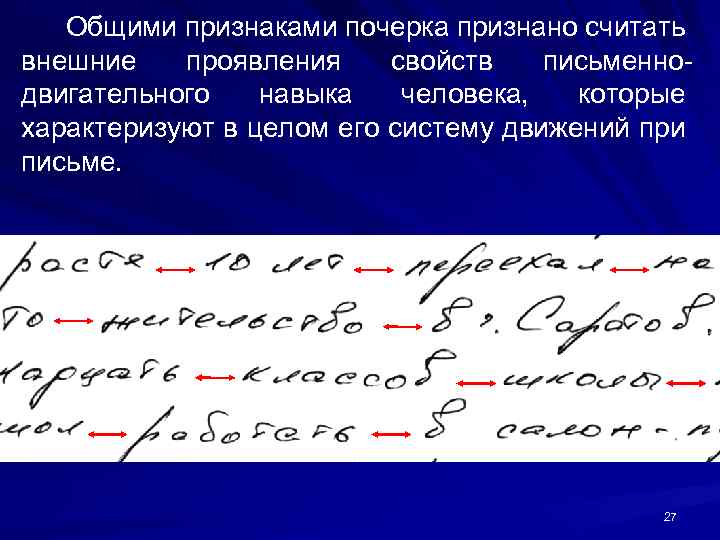 Общими признаками почерка признано считать
внешние проявления свойств письменно-
двигательного навыка человека, которые
характеризуют в целом его систему движений при
письме.
растя 10 лет переехал на
то жительство в г. Саратов.
надцать классов школы
мол работать в салон-
27